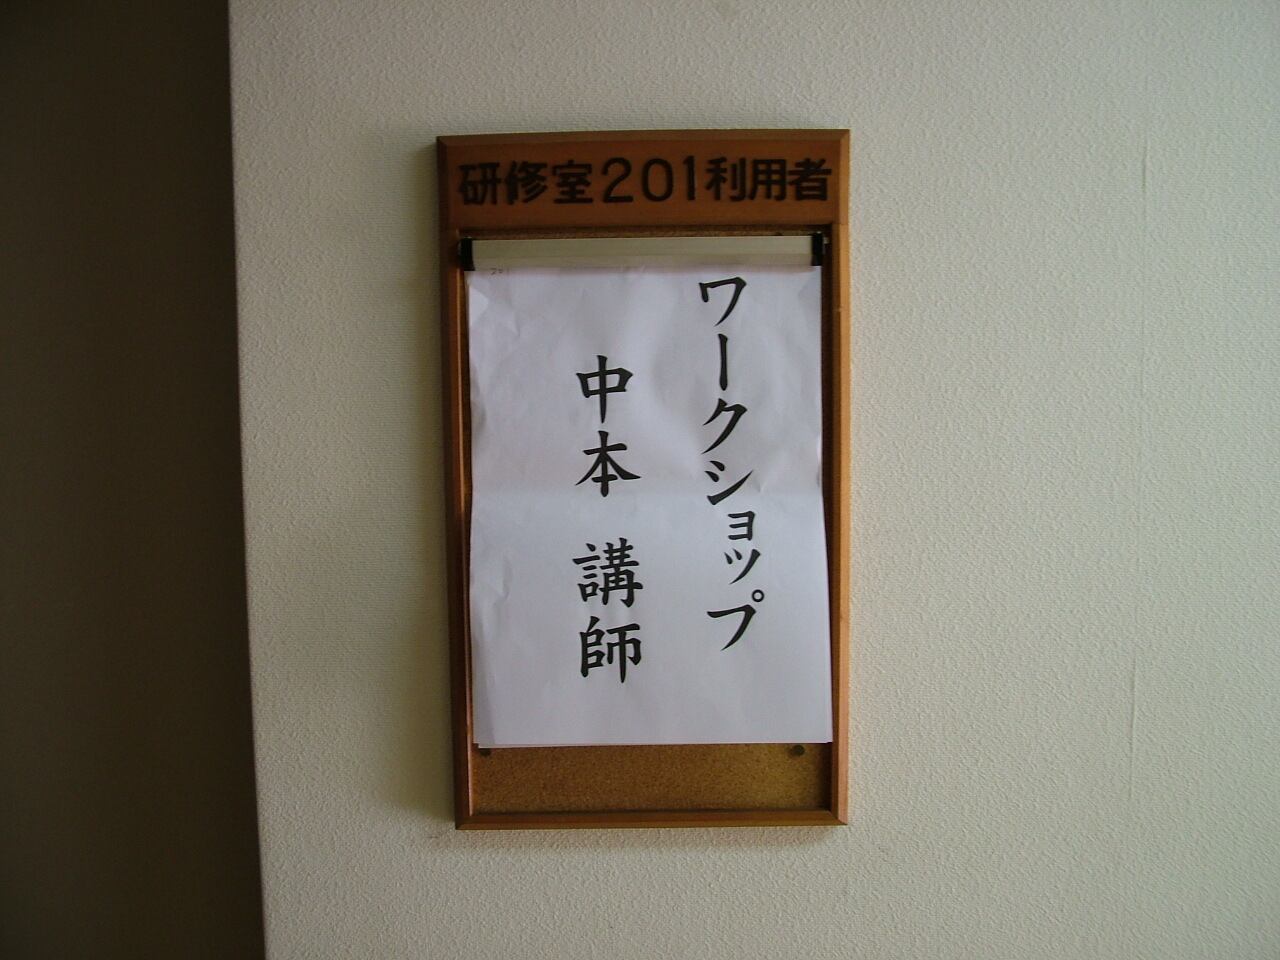 研修室201利用者
201
ワークショップ
中本 講師